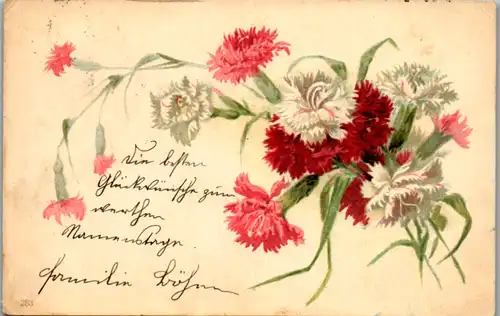 Die besten
Glückwünsche zum
werthen
Namenstage
Familie Böhm
283